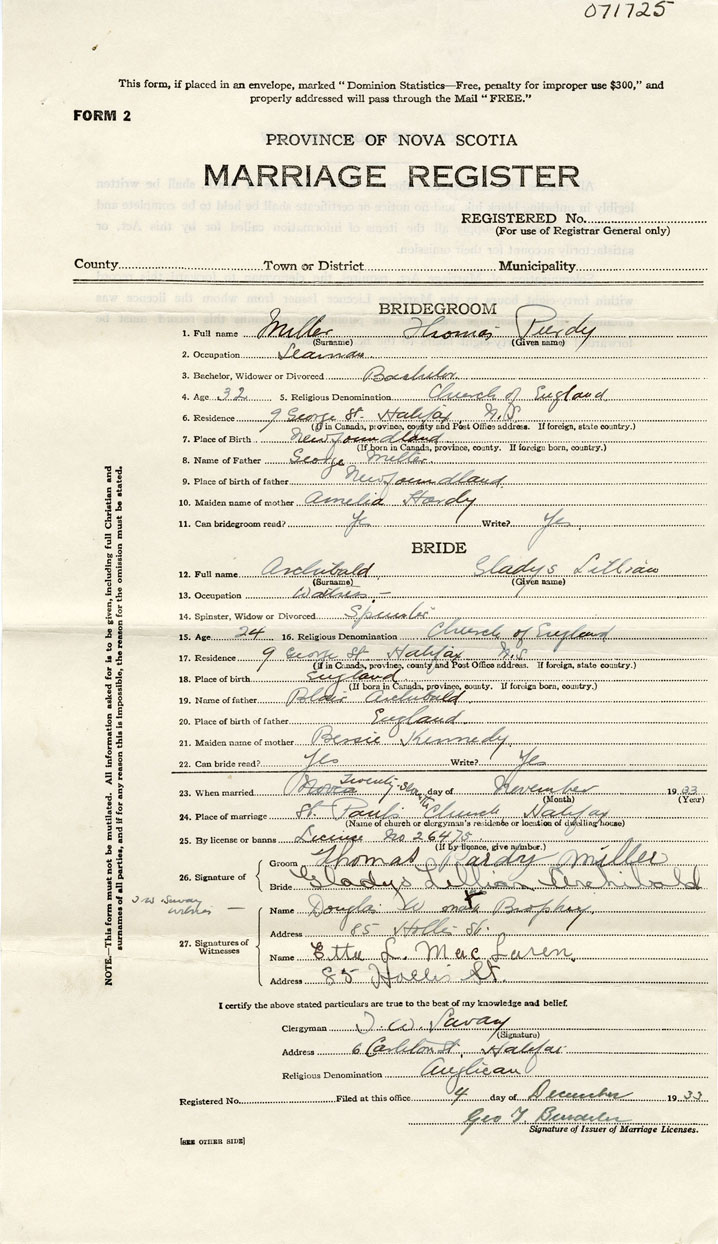 071725
This form, if placed in an envelope, marked “Dominion Statistics—Free, penalty for improper use $300,” and
properly addressed will pass through the Mail “FREE.”
FORM 2
PROVINCE OF NOVA SCOTIA
MARRIAGE REGISTER
REGISTERED No.
(For use of Registrar General only)
County Town or District Municipality
BRIDEGROOM
1. Full name Miller Thomas Purdy
(Surname) (Given name)
2. Occupation Seaman
3. Bachelor, Widower or Divorced Bachelor
4. Age 32 5. Religious Denomination Church of England
6. Residence 9 George St. Halifax N.S.
(If in Canada, province, county and Post Office address. If foreign, state country.)
7. Place of Birth Newfoundland
(If born in Canada, province, county. If foreign born, country.)
8. Name of Father George Miller
9. Place of birth of father Newfoundland
10. Maiden name of mother Amelia Hardy
11. Can bridegroom read? Yes Write? Yes
BRIDE
12. Full name Archibald Gladys Lillian
(Surname) (Given name)
13. Occupation Waitress
14. Spinster, Widow or Divorced Spinster
15. Age 24 16. Religious Denomination Church of England
17. Residence 9 George St. Halifax N.S.
(If in Canada, province, county and Post Office address. If foreign, state country.)
18. Place of birth England
(If born in Canada, province, county. If foreign born, country.)
19. Name of father Archibald
20. Place of birth of father England
21. Maiden name of mother Bessie Kennedy
22. Can bride read? Yes Write? Yes
23. When married Twenty- day of November 1933
(Month) (Year)
24. Place of marriage St. Paul's Church Halifax
(Name of church or clergyman's residence or location of dwelling house)
25. By license or banns License No 26475
(If by licence, give number.)
26. Signature of
Groom Thomas Pardy Miller
Bride Gladys Lillian Archibald
27. Signatures of Witnesses
Name Douglas W Brophy
Address 85 Hollis St.
Name Etta L. MacLaren
Address 85 Hollis St.
witness
NOTE.—This form must not be mutilated. All information asked for is to be given, including full Christian and
surnames of all parties, and if for any reason this is impossible, the reason for the omission must be stated.
I certify the above stated particulars are true to the best of my knowledge and belief.
Clergyman T. W. Savary
(Signature)
Address 6 Carleton St., Halifax
Religious Denomination Anglican
Registered No. Filed at this office 4 day of December 1933
Geo T.
Signature of Issuer of Marriage Licenses.
[SEE OTHER SIDE]